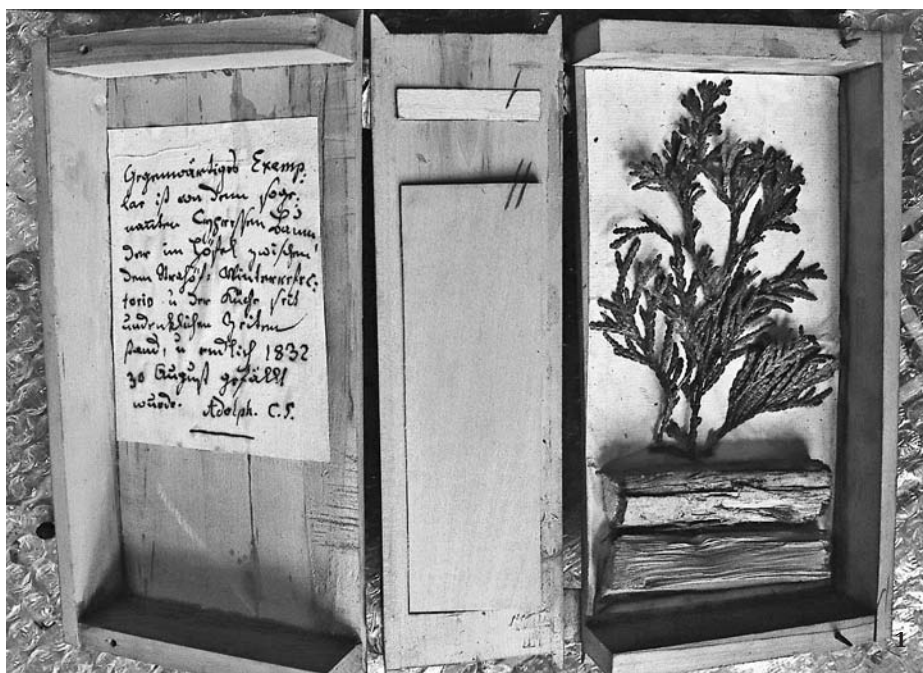 Gegenwärtiges Exemp:
lar ist von dem soge:
nannten Cypressen Baum
der im Höfel zwischen
dem Strahöf: Winterrefec:
torio u der Küche seit
undenklichen Zeiten
stand, u endlich 1832
30 August gefällt
wurde. Adolph. C. S.
1